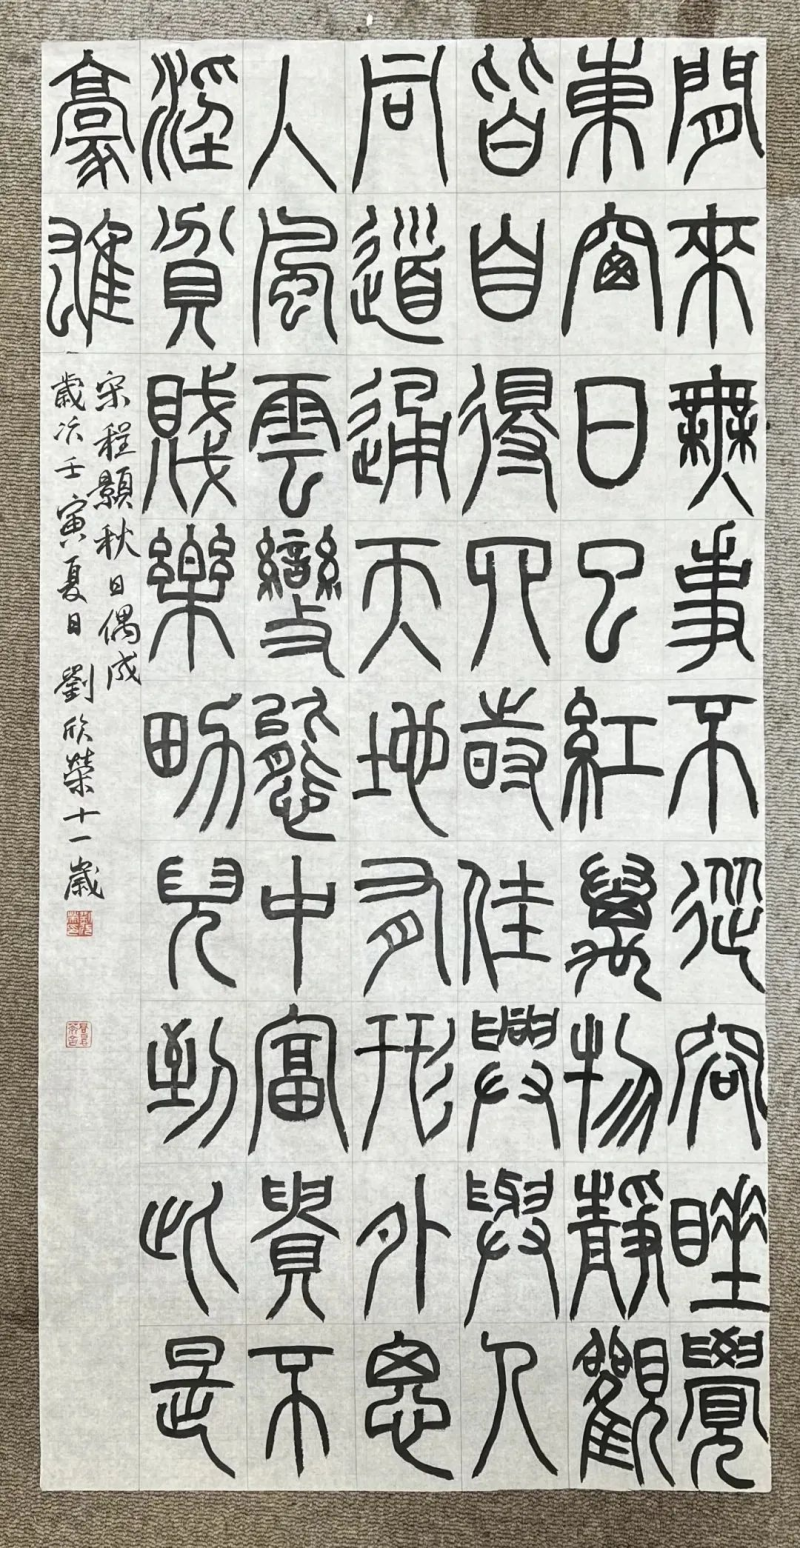 閒來無事不從容睡覺
東窗日已紅萬物靜觀
皆自得四時佳興與人
同道通天地有形外思
入風雲變態中富貴不
淫貧賤樂男兒到此是
豪雄
宋程顥秋日偶成
歲次壬寅夏日劉欣榮十一歲